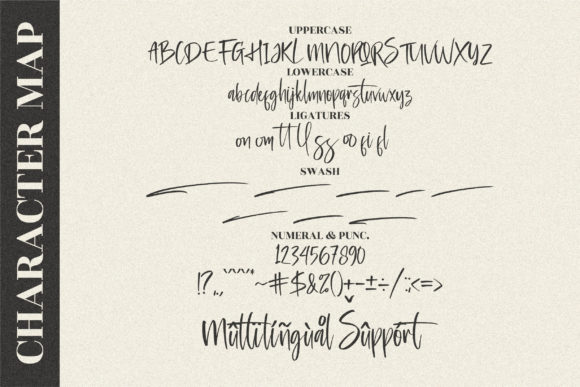 CHARACTER MAP
UPPERCASE
ABCDEFGHIJKLMNOPQRSTUVWXYZ
LOWERCASE
abcdefghijklmnopqrstuvwxyz
LIGATURES
on om tt ll ss oo fi fl
SWASH
NUMERAL & PUNC.
1234567890
!?.,"^~#$&%()+-±÷/:;<=>
Mûltitíñgùål Sûppórt